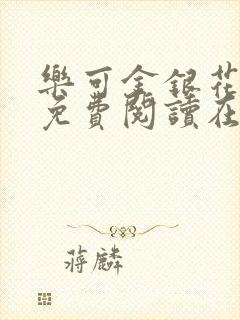 樂可金銀花
免費閱讀在
蔣麟